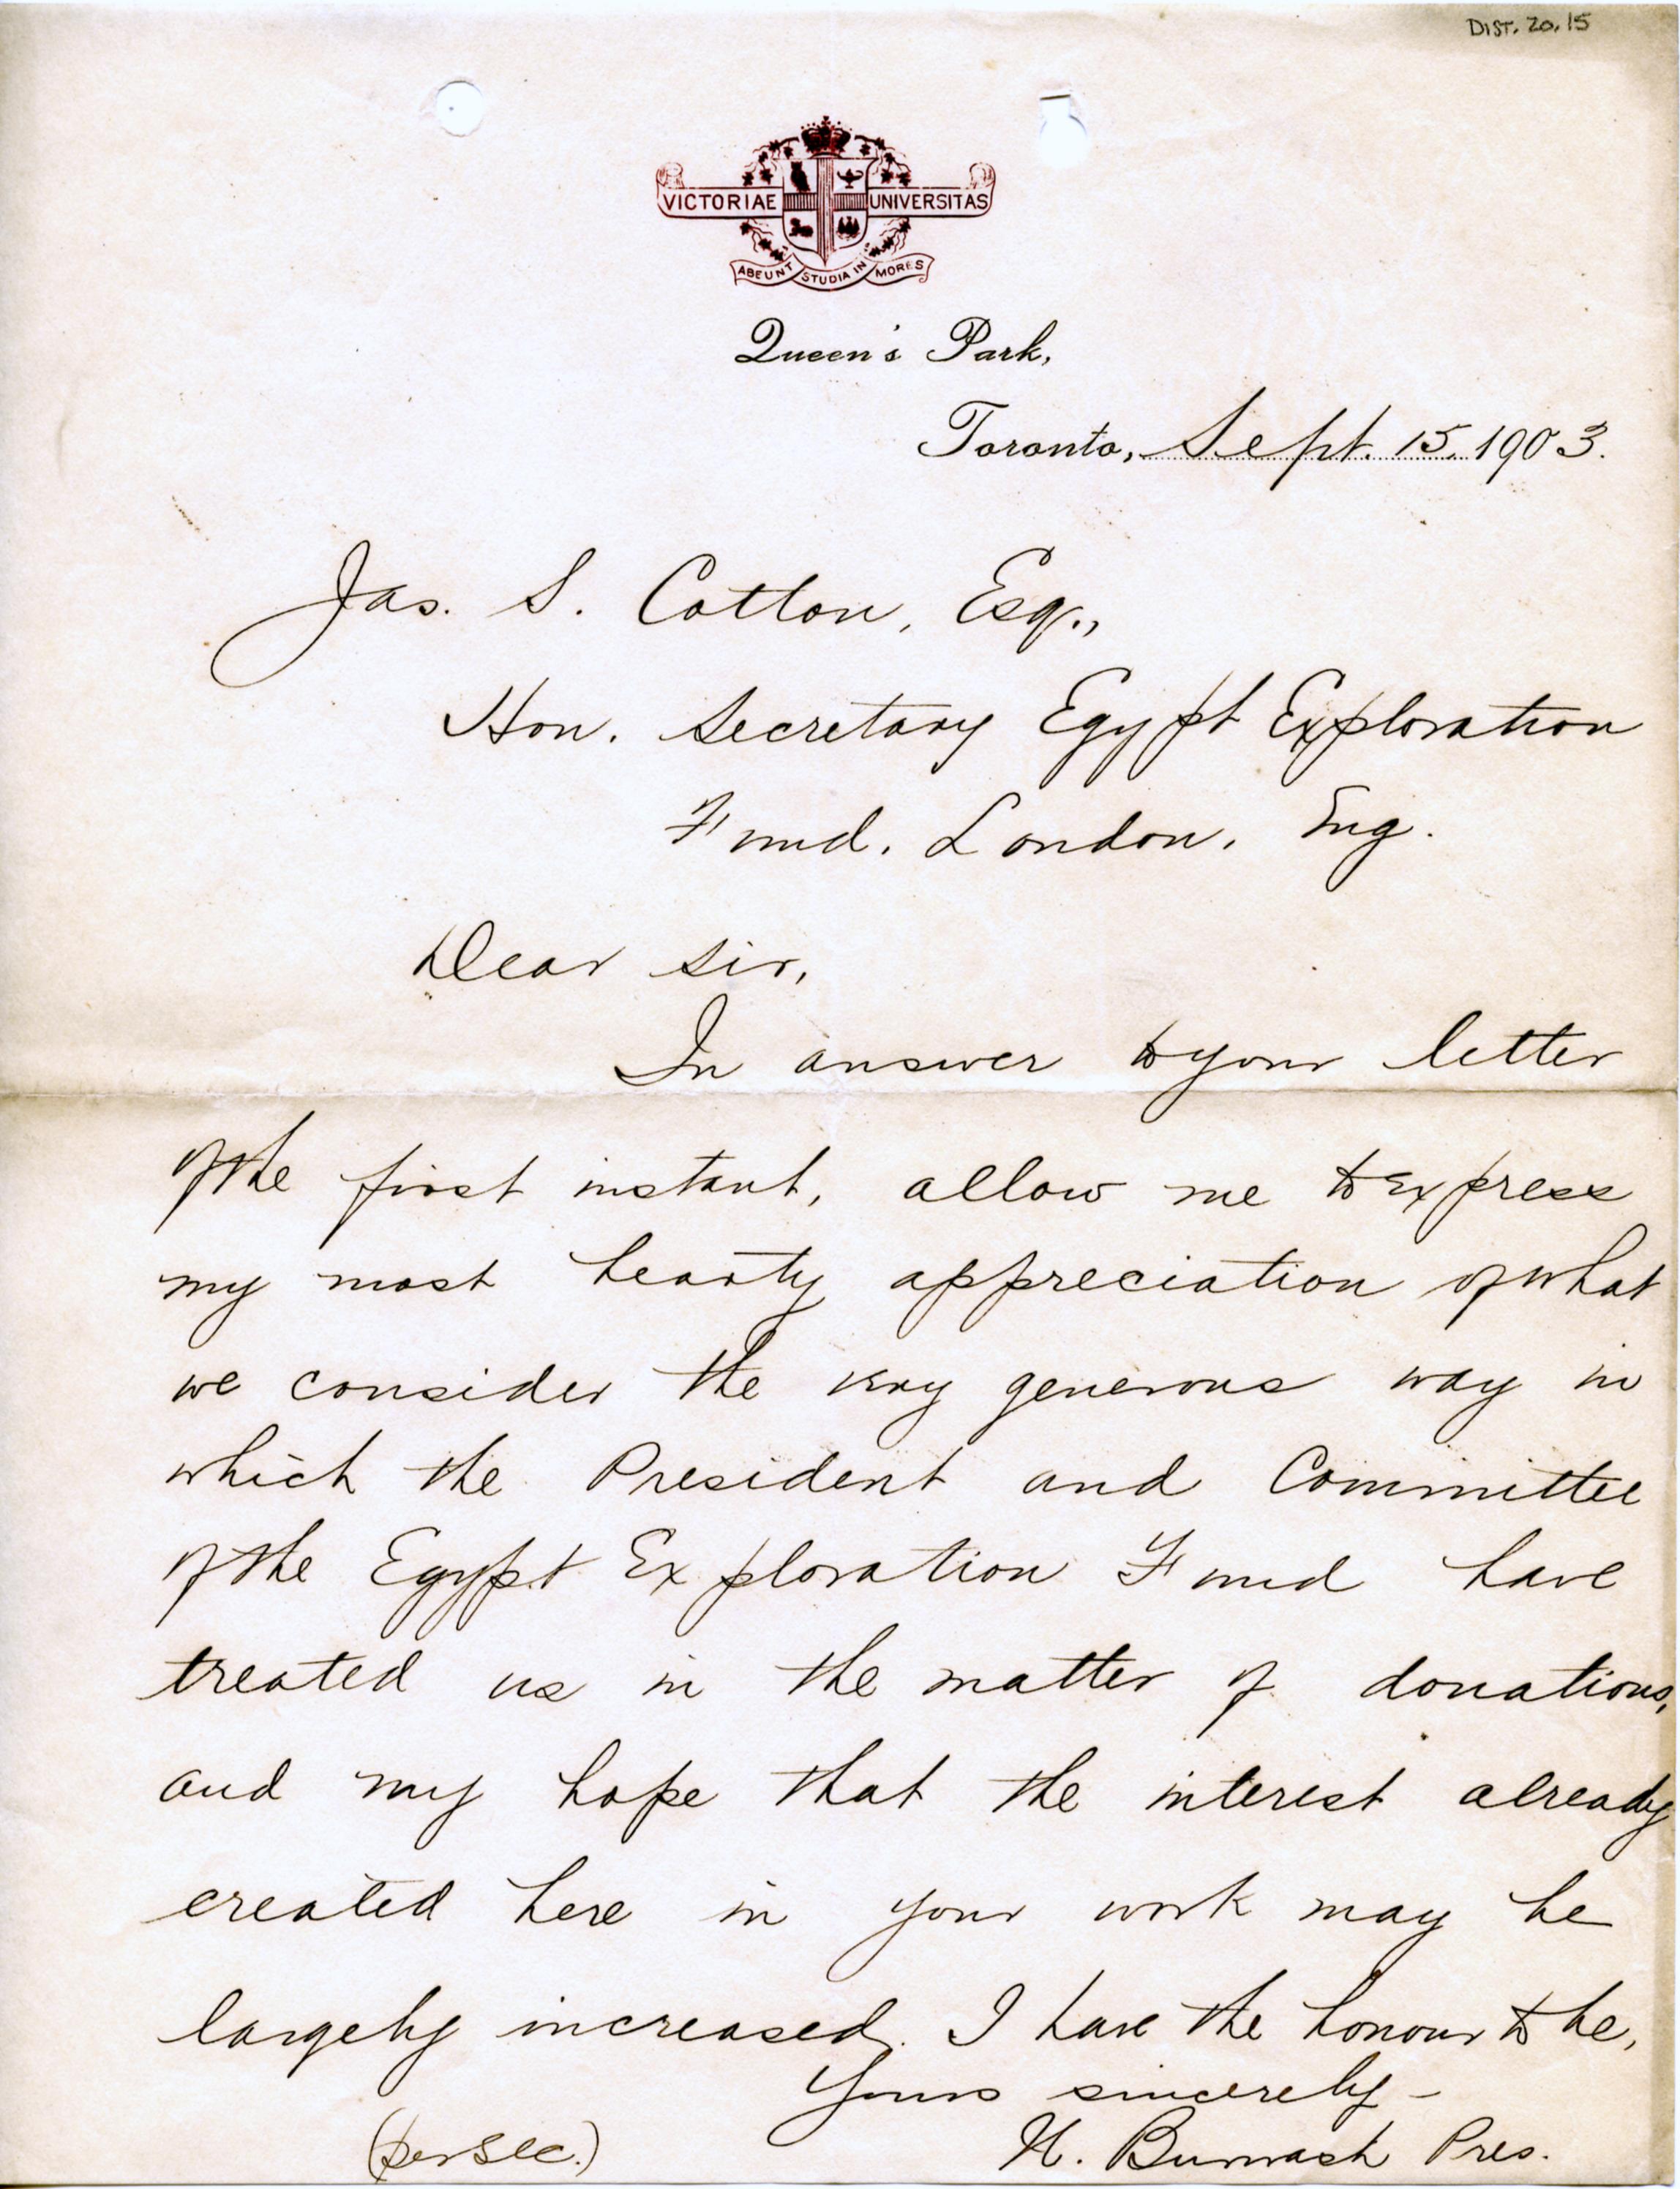 DIST. 20.15
VICTORIAE UNIVERSITAS
ABEUNT STUDIA IN MORES
Queen's Park,
Toronto, Sept. 15, 1903.
Jas. S. Cotton, Esq.,
Hon. Secretary Egypt Exploration
Fund. London. Eng.
Dear Sir,
In answer to your letter
of the first instant, allow me to express
my most hearty appreciation of what
we consider the very generous way in
which the President and Committee
of the Egypt Exploration Fund have
treated us in the matter of donations,
and my hope that the interest already
created here in your work may be
largely increased. I have the honour to be,
Yours sincerely –
(per Sec.) N. Burwash Pres.